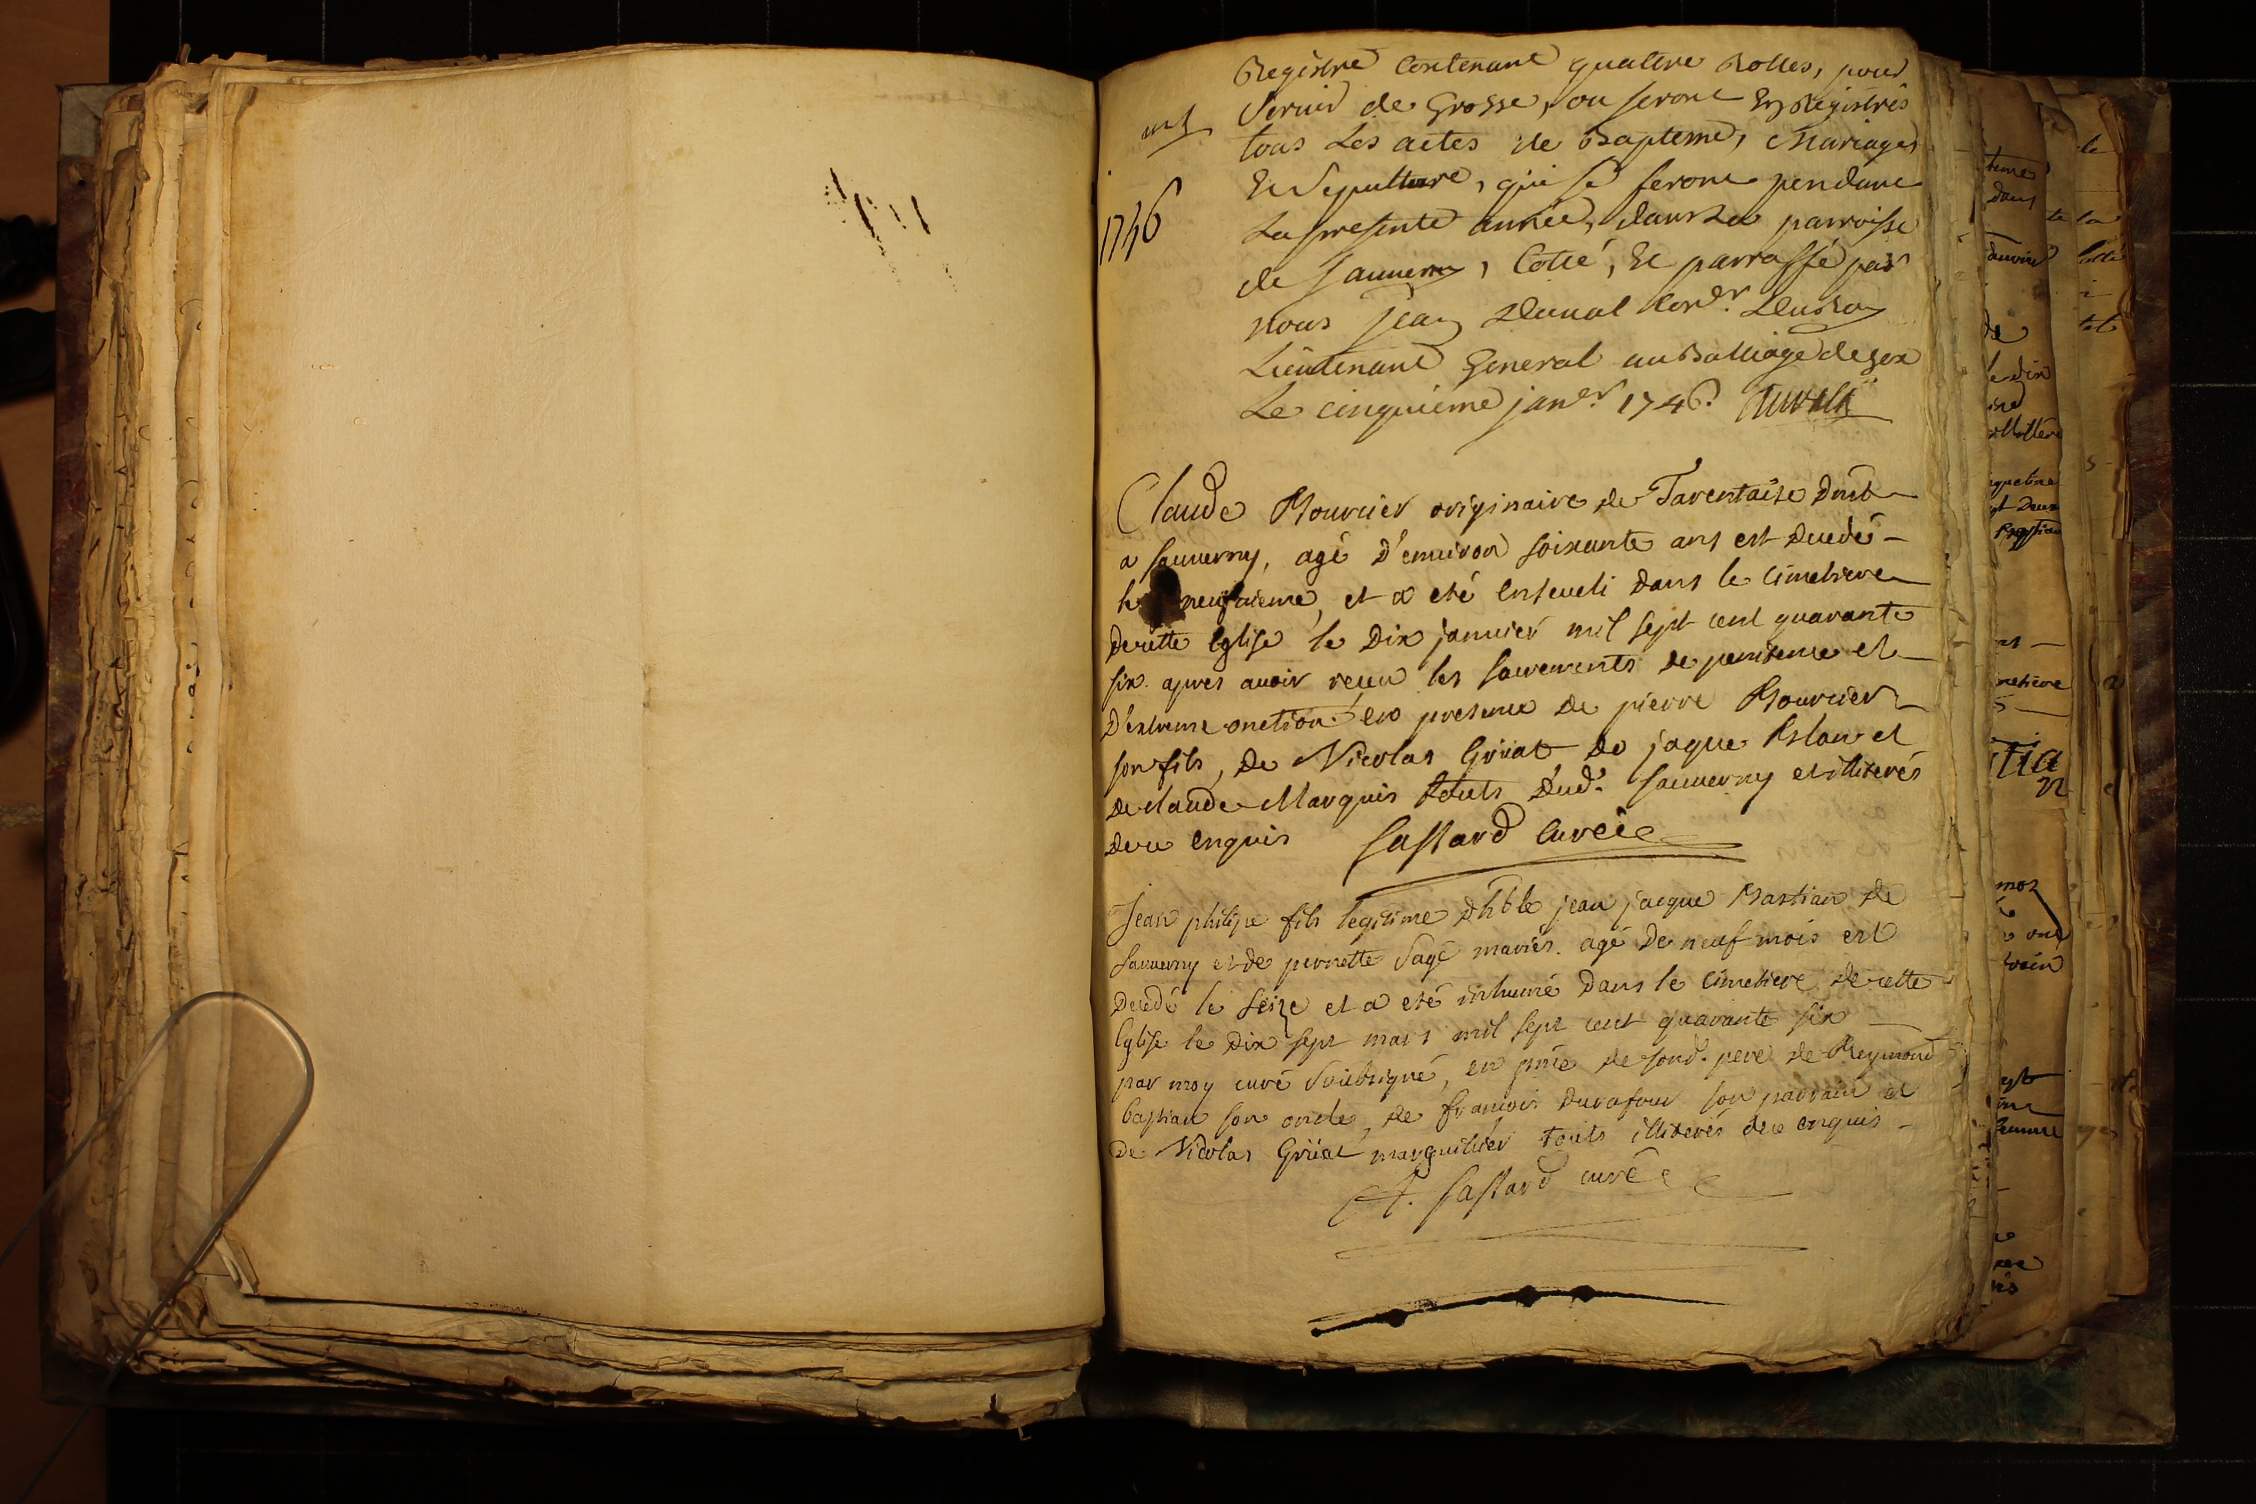 Registre Contenant quattre Rolles, pour
Servir de Grosse, ou seront Enregistrés
tous Les actes de Bapteme, Mariages
Et Sepulture, qui se feront pendant
La presente année, dans La parroisse
de Sauverny, Cotté, Et parraffé par
nous jean Duval
Lieutenant General au Balliage de gex
Le cinquième janer. 1746. Duval
1746
Claude Mourcier originaire de Tarentaise
a sauverny, agé d'environ soixante ans est decedé
le neufvieme, et a eté enseveli dans le cimetiere
de cette Eglise le dix janvier mil sept cent quarante
six. apres avoir receu les sacrements de penitence et
d'extreme onction en presence de pierre Mourcier
son fils, de Nicolas Grüat de jaque et
de claude Marquis touts dud. sauverny et illiterés
de ce enquis Castard Curé
Jean philipe fils legitime d'hble jean jacque Bastian de
sauverny et de pernette Sage mariés. agé de neuf mois est
decedé le seize et a eté inhumé dans le cimetiere de cette
Eglise le dix sept mars mil sept cent quarante six
par moy curé soubsigné, en pnce de sond. pere de Reymond
bastian son oncle, de françois Durafour son parrain et
de Nicolas Grüat marguillier touts illiterés de ce enquis
Castard curé